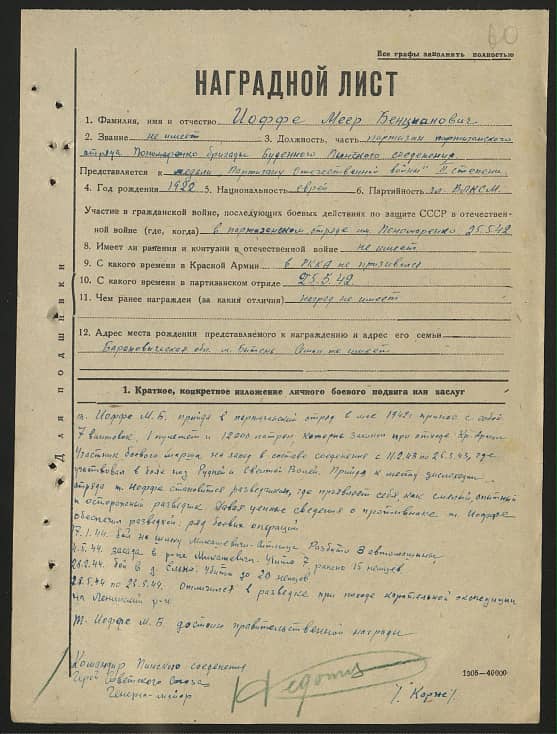 60
Все графы заполнять полностью
НАГРАДНОЙ ЛИСТ
1. Фамилия, имя и отчество Иоффе Меер Бенцианович
2. Звание не имеет 3. Должность, часть партизан партизанского
отряда Пономаренко бригады Буденного Пинского соединения
Представляется к медали "Партизану Отечественной войны" II степени.
4. Год рождения 1920 5. Национальность еврей 6. Партийность чл. ВЛКСМ.
Участие в гражданской войне, последующих боевых действиях по защите СССР в отечествен-
ной войне (где, когда) в партизанском отряде им. Пономаренко 25.5.42
8. Имеет ли ранения и контузии в отечественной войне не имеет
9. С какого времени в Красной Армии в РККА не призывался
10. С какого времени в партизанском отряде 25.5.42.
11. Чем ранее награжден (за какия отличия) наград не имеет
12. Адрес места рождения представляемого к награждению и адрес его семьи
Барановичская обл. м. Битень. Семьи не имеет
Для подшивки
1. Краткое, конкретное изложение личного боевого подвига или заслуг
т. Иоффе М.Б. прийдя в партизанский отряд в мае 1942г принес с собой
7 винтовок, 1 пулемет и 12000 патрон, которые закопал при отходе Кр. Армии.
Участник боевого марша на запад в составе соединения с 11.2.43 по 26.3.43, где
участвовал в боях на Рудней и Святой Волей. Прийдя к месту дислокации
отряда т. Иоффе становится разведчиком, где проявляет себя, как смелый, опытный
и осторожный разведчик. Давая ценные сведения о противнике т. Иоффе
обеспечил разведкой ряд боевых операций
17.1.44. бой на шляху Микашевичи- Разбито 3 автомашины,
4.5.44. засада в р-не Микашевичи. Убито 7, ранено 15 немцев
26.2.44. бой в д. Елено. Убито до 20 немцев
28.5.44 по 29.5.44. Отличился в разведке при походе карательной экспедиции
на Ленинский р-н
Т. Иоффе М.Б. достоин правительственной награды
Командир Пинского соединения
Герой Советского Союза
Генерал-майор
/. Корж/.
1905—40000